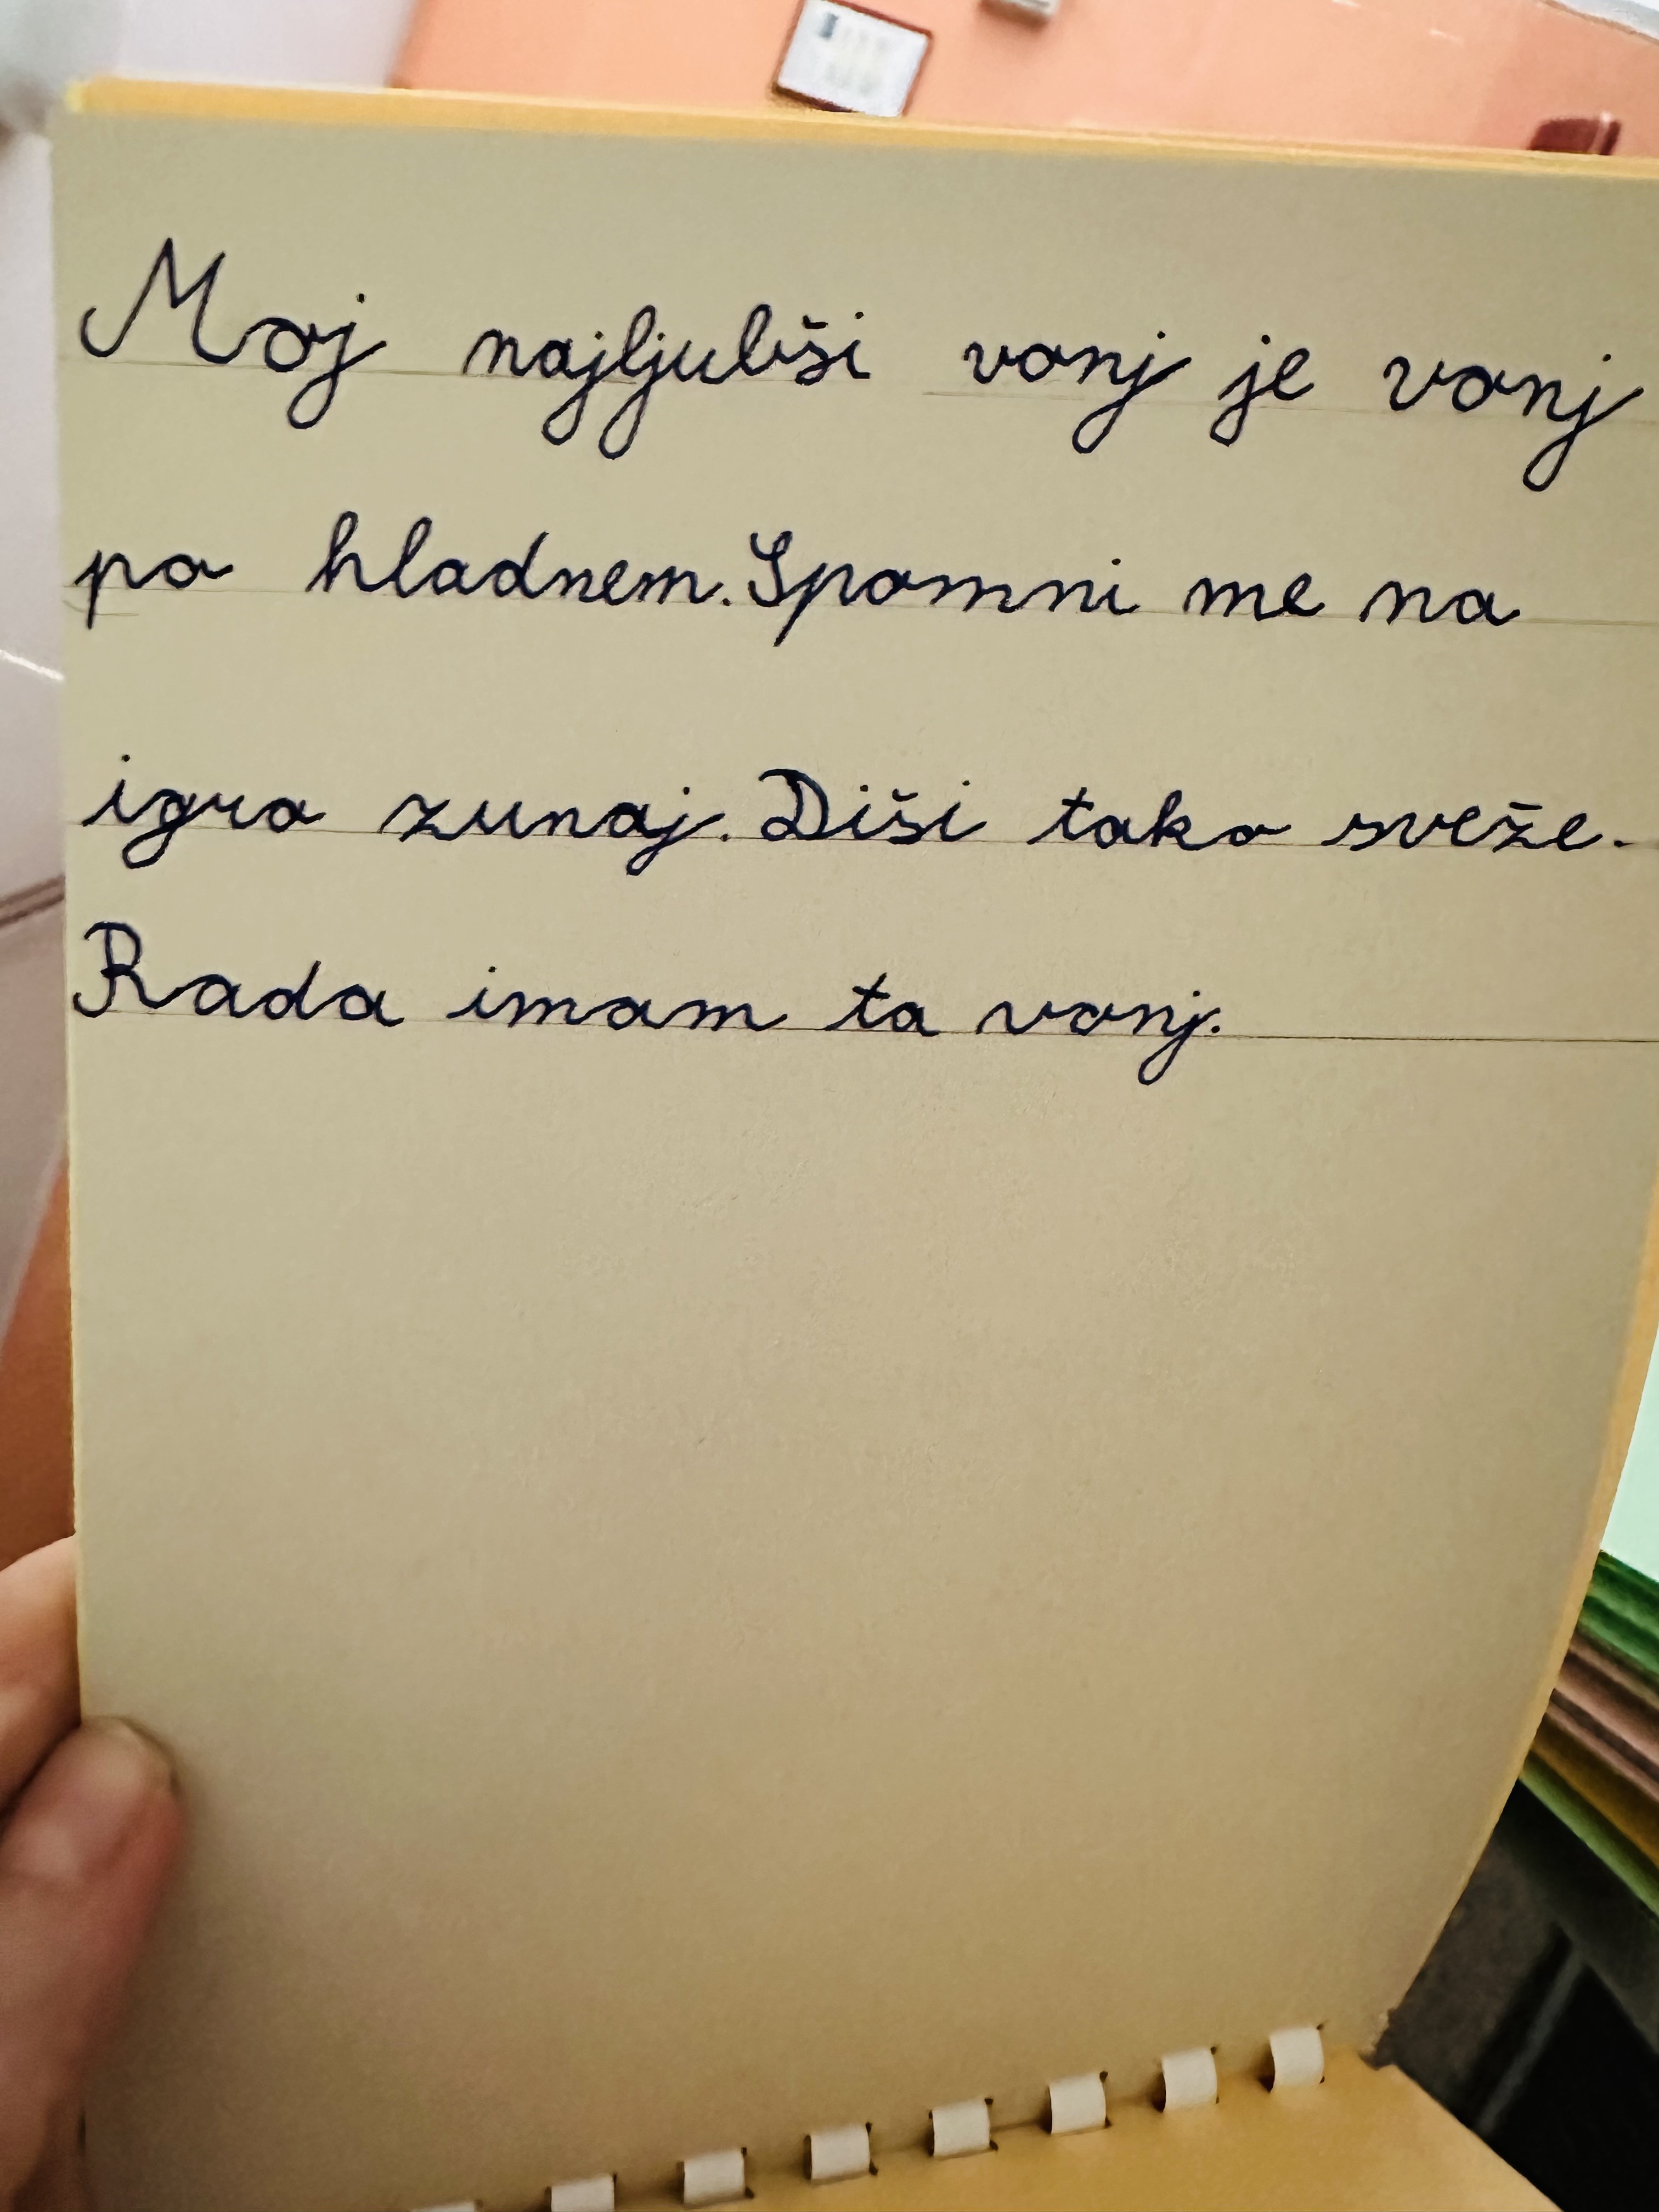 Moj najljubši vonj je vonj
po hladnem. Spomni me na
igro zunaj. Diši tako sveže.
Rada imam ta vonj.